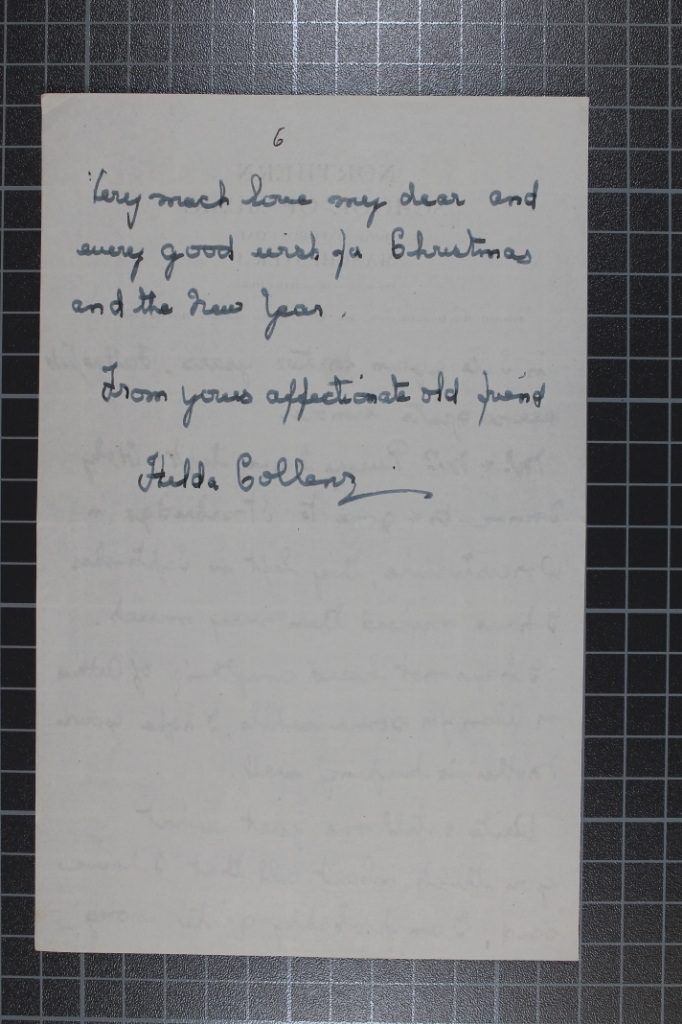 6
Very much love my dear and
every good wish for Christmas
and the New Year.
From yours affectionate old friend
Hilda Collens